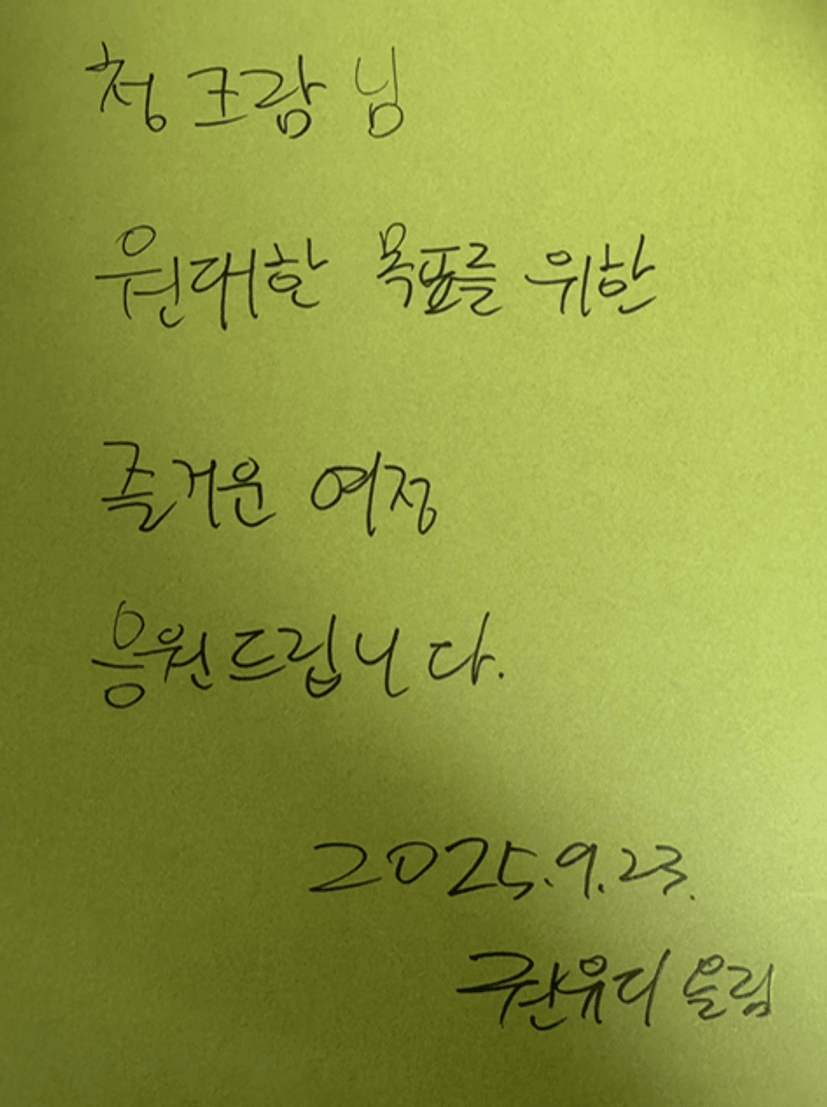 청크람 님
원대한 목표를 위한
즐거운 여정
응원드립니다.
2025.9.23.
권유디 올림